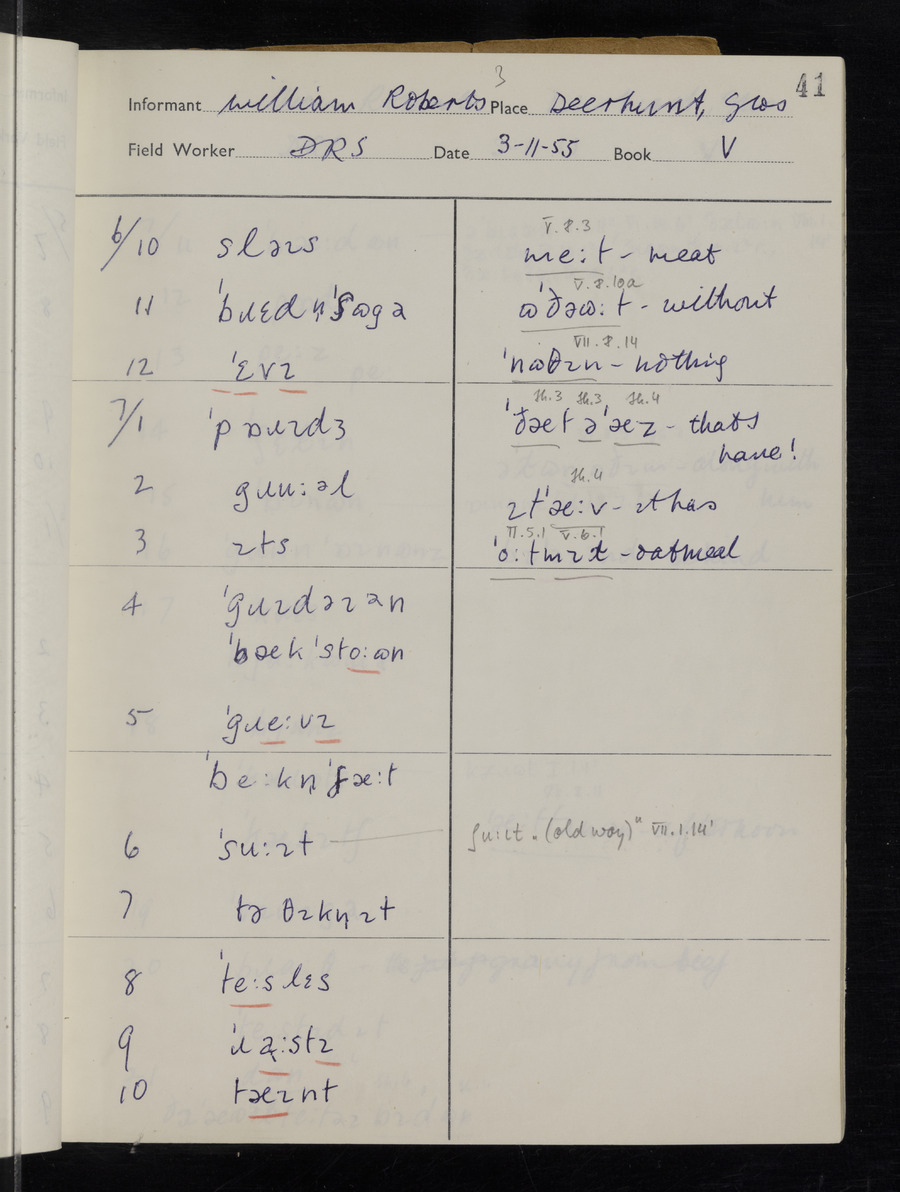 41
Informant William Roberts 3 Place Deerhurst, Glos
Field Worker DRS Date 3-11-55 Book V
6/10 slaɪs
11 ˈbɹɛdn̩ˈʃɷgə
12 ˈɛvɪ
7/1 ˈpɒɹɪdʒ
2 gɹu:əl
3 ɪts
4 ˈgɹɪdəɪən
ˈbækˈsto:ɷn
5 ˈgɹe:vɪ
ˈbe:kn̩ˈfæ:t
6 ˈsu:ɪt
7 tə θɪkn̩ ɪt
8 ˈte:slɛs
9 ˈɹą:stɪ
10 tæɪnt
V.8.3
me:t - meat
V.8.10a
ɷˈðəɷ:t - without
VII.8.14
ˈnɷθɪn - nothing
ˈðæt əˈæz - thats
have!
ɪtˈæ:v - ithas
II.5.1 V.6.1
ˈo:tmɪɫ - oatmeal
ʃu:ɪt. (old way)" VII.1.14'